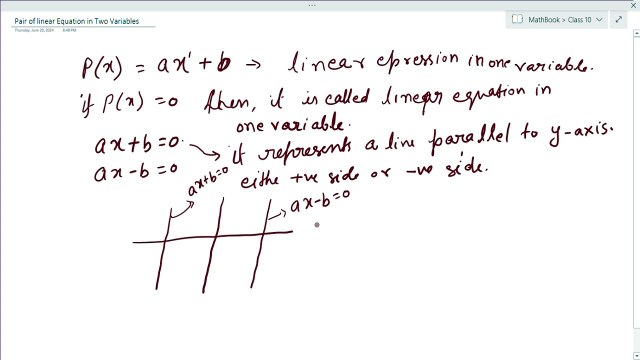 Pair of linear Equation in Two Variables
Thursday, June 20, 2024 8:48 PM
MathBook > Class 10
P(x) = ax¹ + b → linear epression in one variable.
if P(x) = 0 then, it is called linear equation in
one variable.
ax + b = 0.
ax - b = 0
it represents a line parallel to y-axis.
eithe +ve side or -ve side.
ax+b=0
ax-b=0